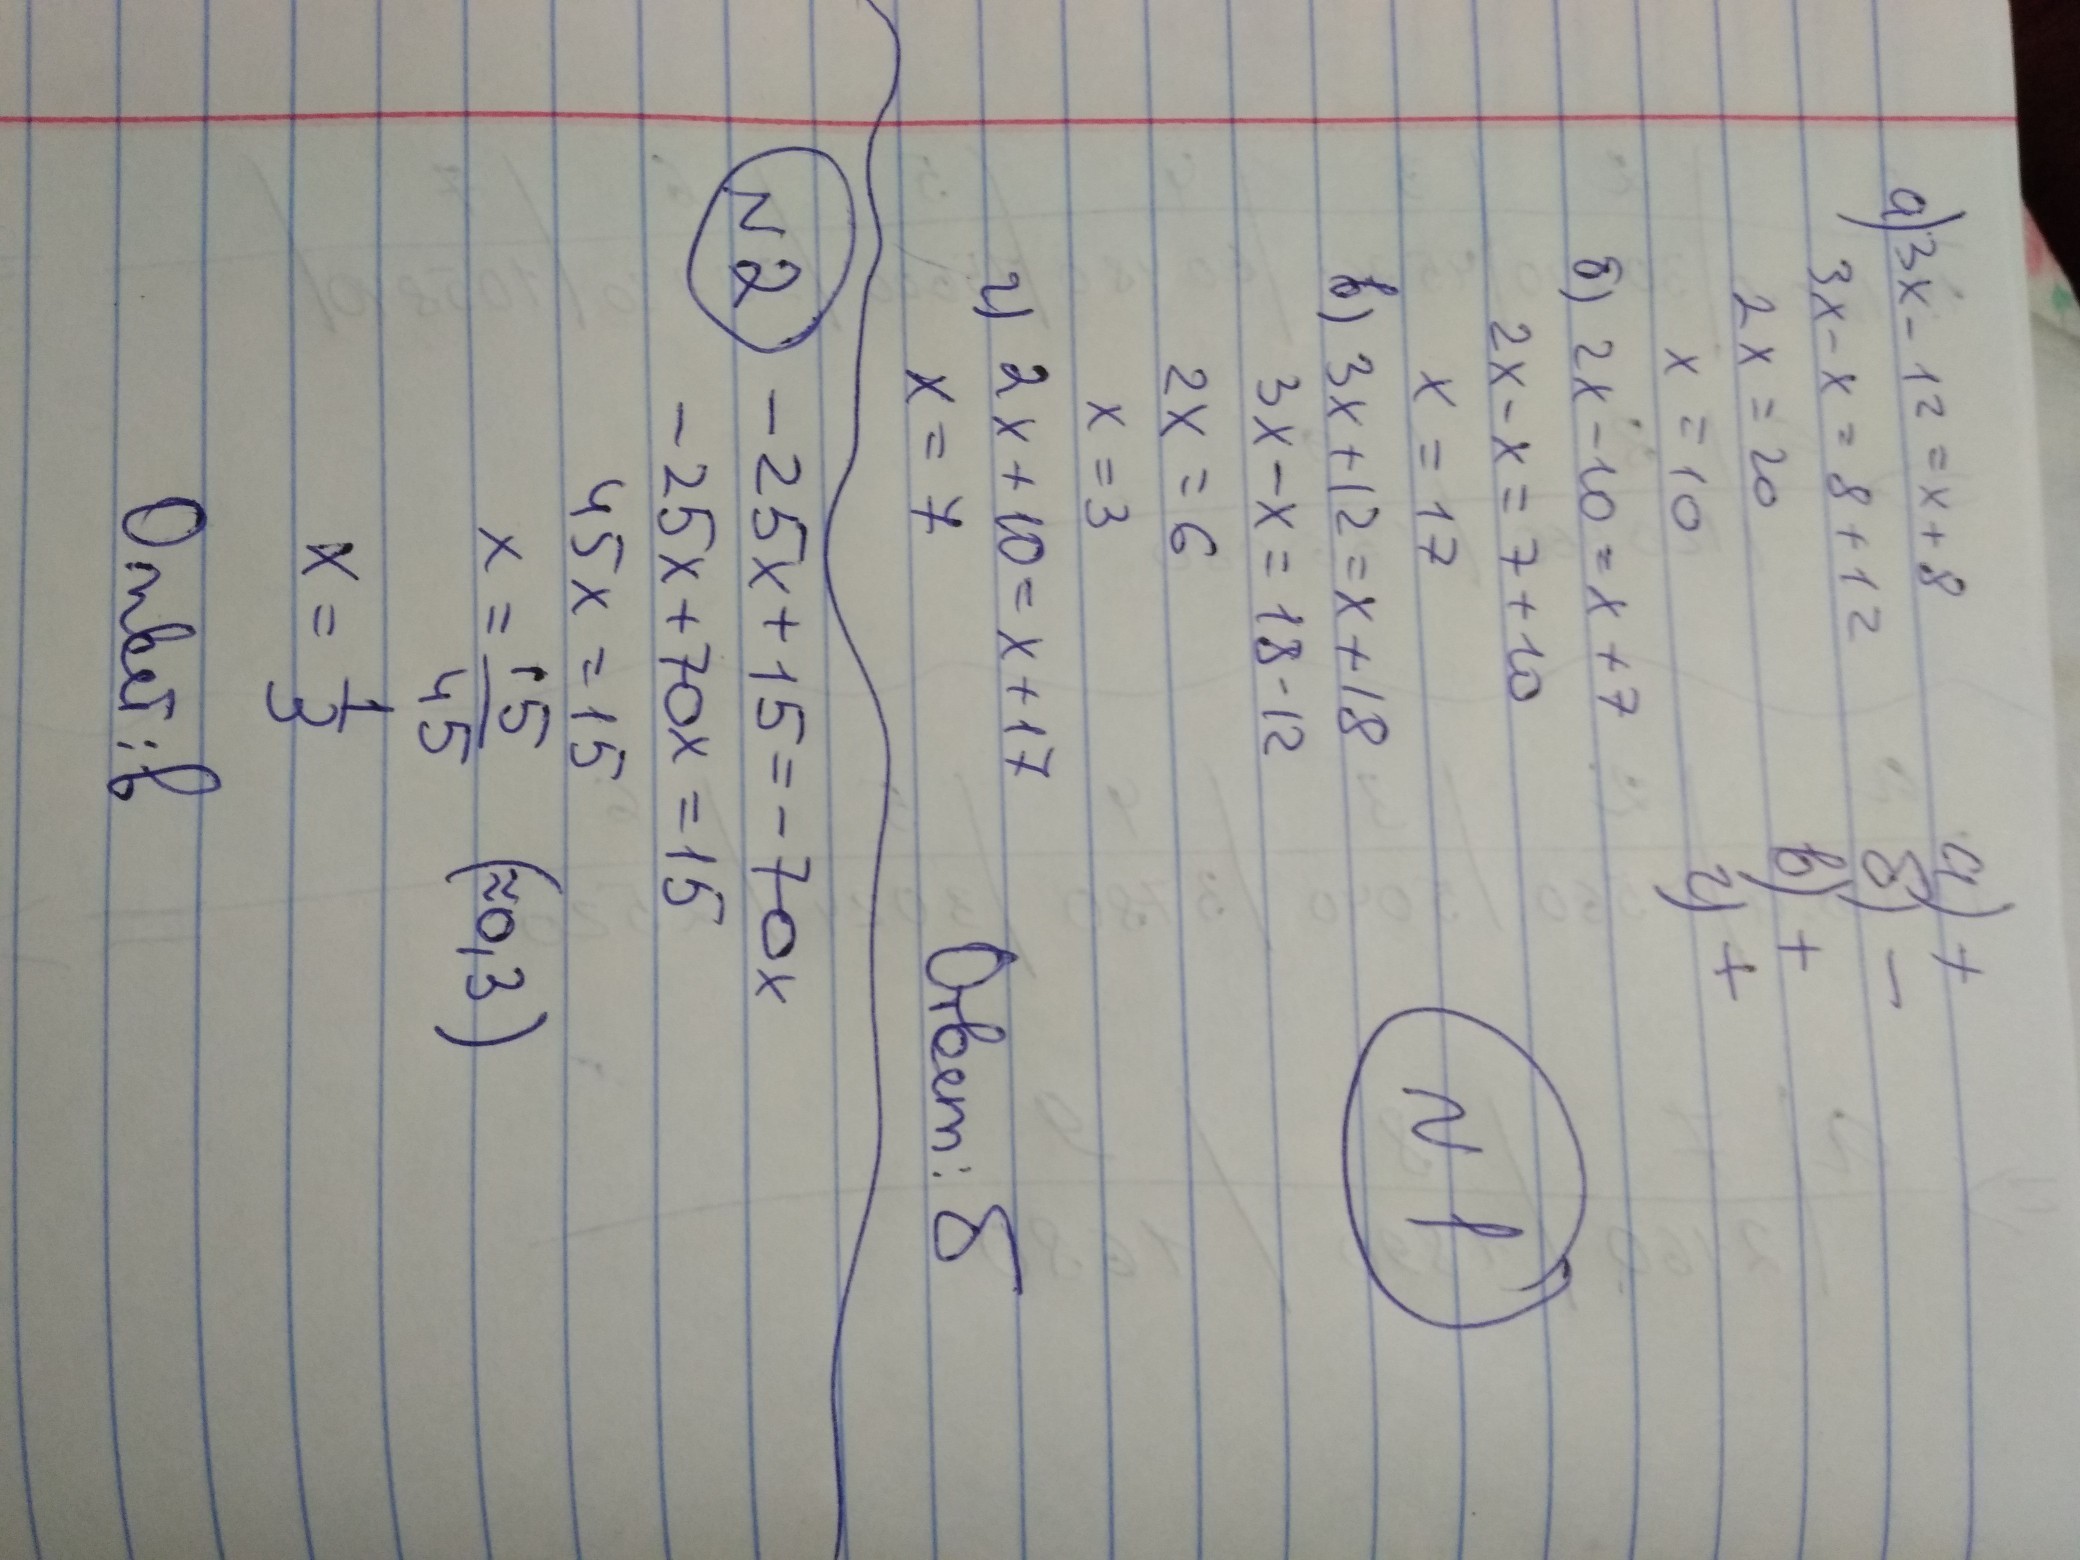 а) 3x - 12 = x + 8
3x - x = 8 + 12
2x = 20
x = 10
б) 2x - 10 = x + 7
2x - x = 7 + 10
x = 17
в) 3x + 12 = x + 18
3x - x = 18 - 12
2x = 6
x = 3
г) 2x + 10 = x + 17
x = 7
а) +
б) -
в) +
г) +
N 1
Ответ: б
N2
-25x + 15 = -70x
-25x + 70x = 15
45x = 15
x = 15/45 (≈0,3)
x = 1/3
Ответ: в